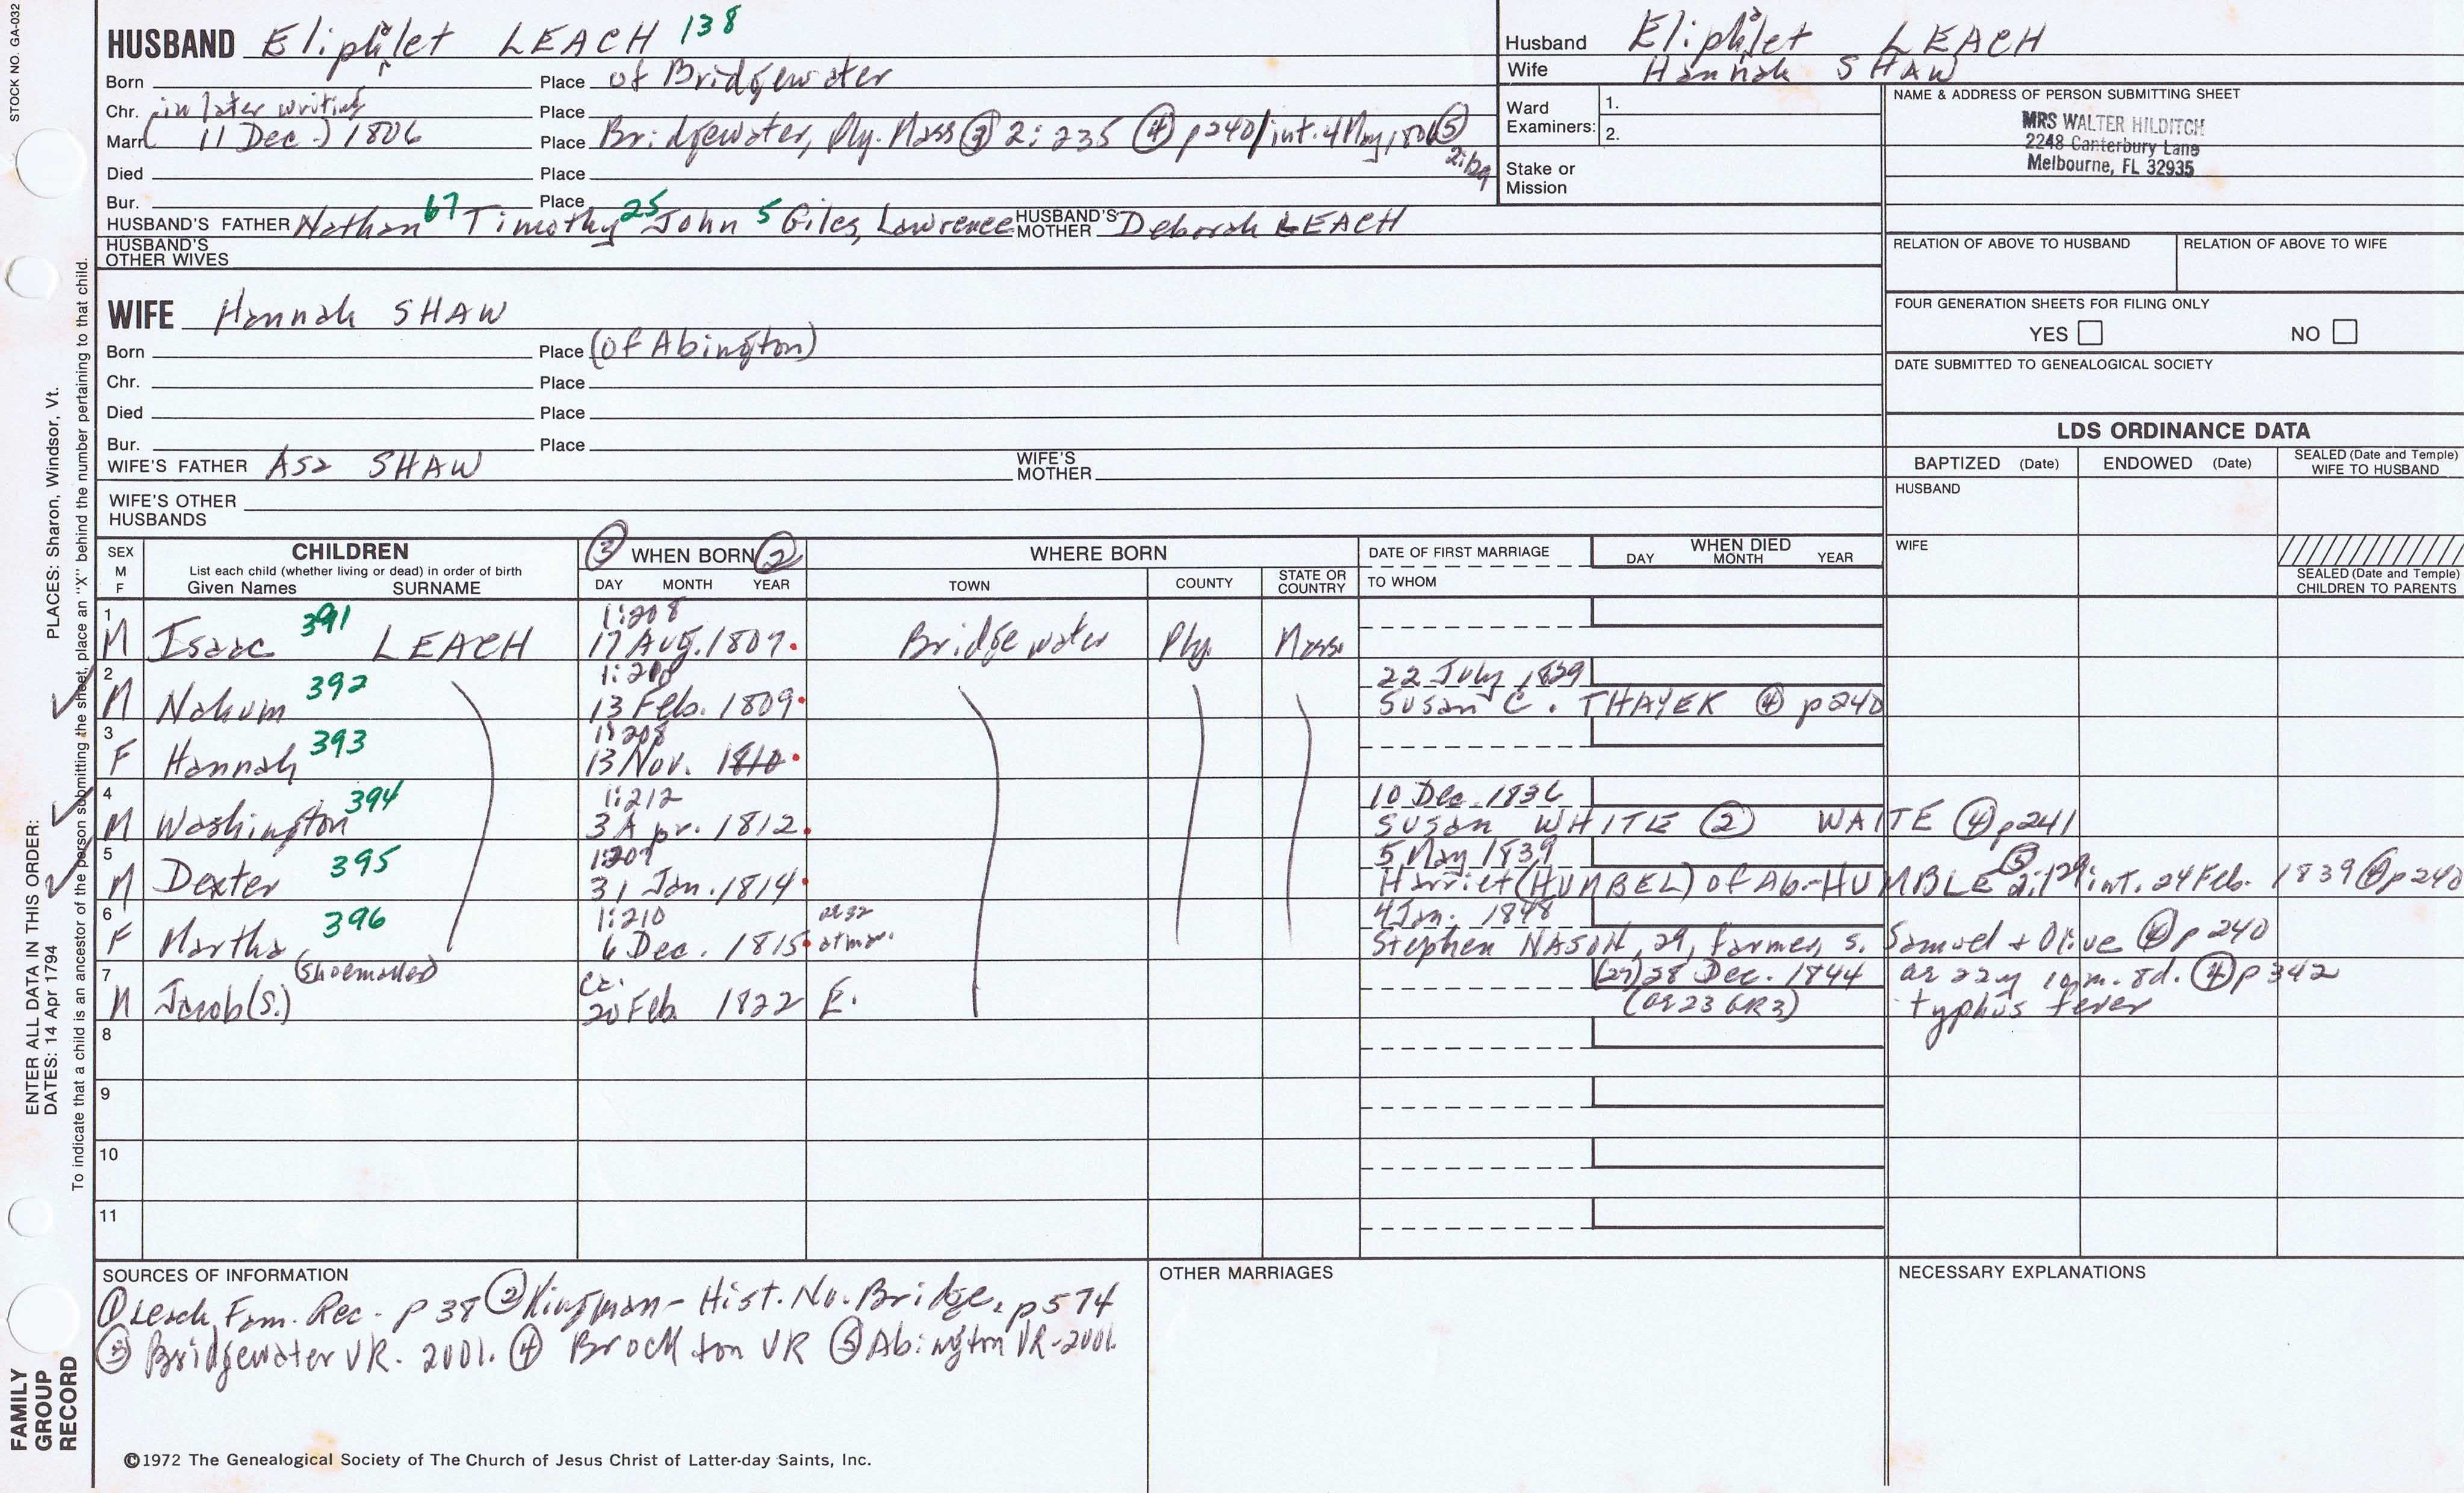 STOCK NO. GA-032
HUSBAND Eliphalet LEACH 138
Born Place of Bridgewater
Chr. in later writing Place
Marr. (11 Dec.) 1806 Place Bridgewater, Ply. Mass ③ 2:235 ④ p240/int. 4 May, 1806 ⑤ 2:129
Died Place
Bur. Place
HUSBAND'S FATHER Nathan 67 Timothy 25 John 5 Giles, Lawrence HUSBAND'S MOTHER Deborah LEACH
HUSBAND'S OTHER WIVES
Husband Eliphalet LEACH
Wife Hannah SHAW
Ward Examiners: 1.
2.
Stake or Mission
NAME & ADDRESS OF PERSON SUBMITTING SHEET
MRS WALTER HILDITCH
2248 Canterbury Lane
Melbourne, FL 32935
RELATION OF ABOVE TO HUSBAND RELATION OF ABOVE TO WIFE
FOUR GENERATION SHEETS FOR FILING ONLY
YES NO
DATE SUBMITTED TO GENEALOGICAL SOCIETY
WIFE Hannah SHAW
Born Place (of Abington)
Chr. Place
Died Place
Bur. Place
WIFE'S FATHER Asa SHAW WIFE'S MOTHER
WIFE'S OTHER HUSBANDS
LDS ORDINANCE DATA
BAPTIZED (Date) ENDOWED (Date) SEALED (Date and Temple) WIFE TO HUSBAND
HUSBAND
WIFE
SEALED (Date and Temple) CHILDREN TO PARENTS
SEX M F
CHILDREN
List each child (whether living or dead) in order of birth
Given Names SURNAME
③ WHEN BORN ②
DAY MONTH YEAR
WHERE BORN
TOWN COUNTY STATE OR COUNTRY
DATE OF FIRST MARRIAGE
TO WHOM
WHEN DIED
DAY MONTH YEAR
1 M Isaac 391 LEACH 1:208 17 Aug. 1807. Bridgewater Ply. Mass.
2 M Nahum 392 13 Feb. 1809. 22 July 1829 Susan C. THAYER ④ p240
3 F Hannah 393 1:208 13 Nov. 1810.
4 M Washington 394 1:212 3 Apr. 1812. 10 Dec. 1836 Susan WHITE ② WAITE ④ p241
5 M Dexter 395 1:207 31 Jan. 1814. 5 May 1839 Harriet (HUMBEL) of Ab.-HUMBLE ⑤ 2:129 int. 24 Feb. 1839 ④ p240
6 F Martha 396 1:210 6 Dec. 1815. at mar. 4 Jan. 1848 Stephen NASON, 29, farmer, s. Samuel + Olive ④ p240
7 M Jacob (S.) (shoemaker) ca. 20 Feb. 1822 E. (27) 28 Dec. 1844 (ae 23 GR3) ae 22y 10m. 8d. ④ p342 typhus fever
8
9
10
11
SOURCES OF INFORMATION
① Leach Fam. Rec. - p 38 ② Kingman - Hist. No. Bridge. p574
③ Bridgewater VR. 2001. ④ Brockton VR ⑤ Abington VR-2001.
OTHER MARRIAGES
NECESSARY EXPLANATIONS
©1972 The Genealogical Society of The Church of Jesus Christ of Latter-day Saints, Inc.
ENTER ALL DATA IN THIS ORDER:
DATES: 14 Apr 1794 PLACES: Sharon, Windsor, Vt.
To indicate that a child is an ancestor of the person submitting the sheet, place an "X" behind the number pertaining to that child.
FAMILY
GROUP
RECORD